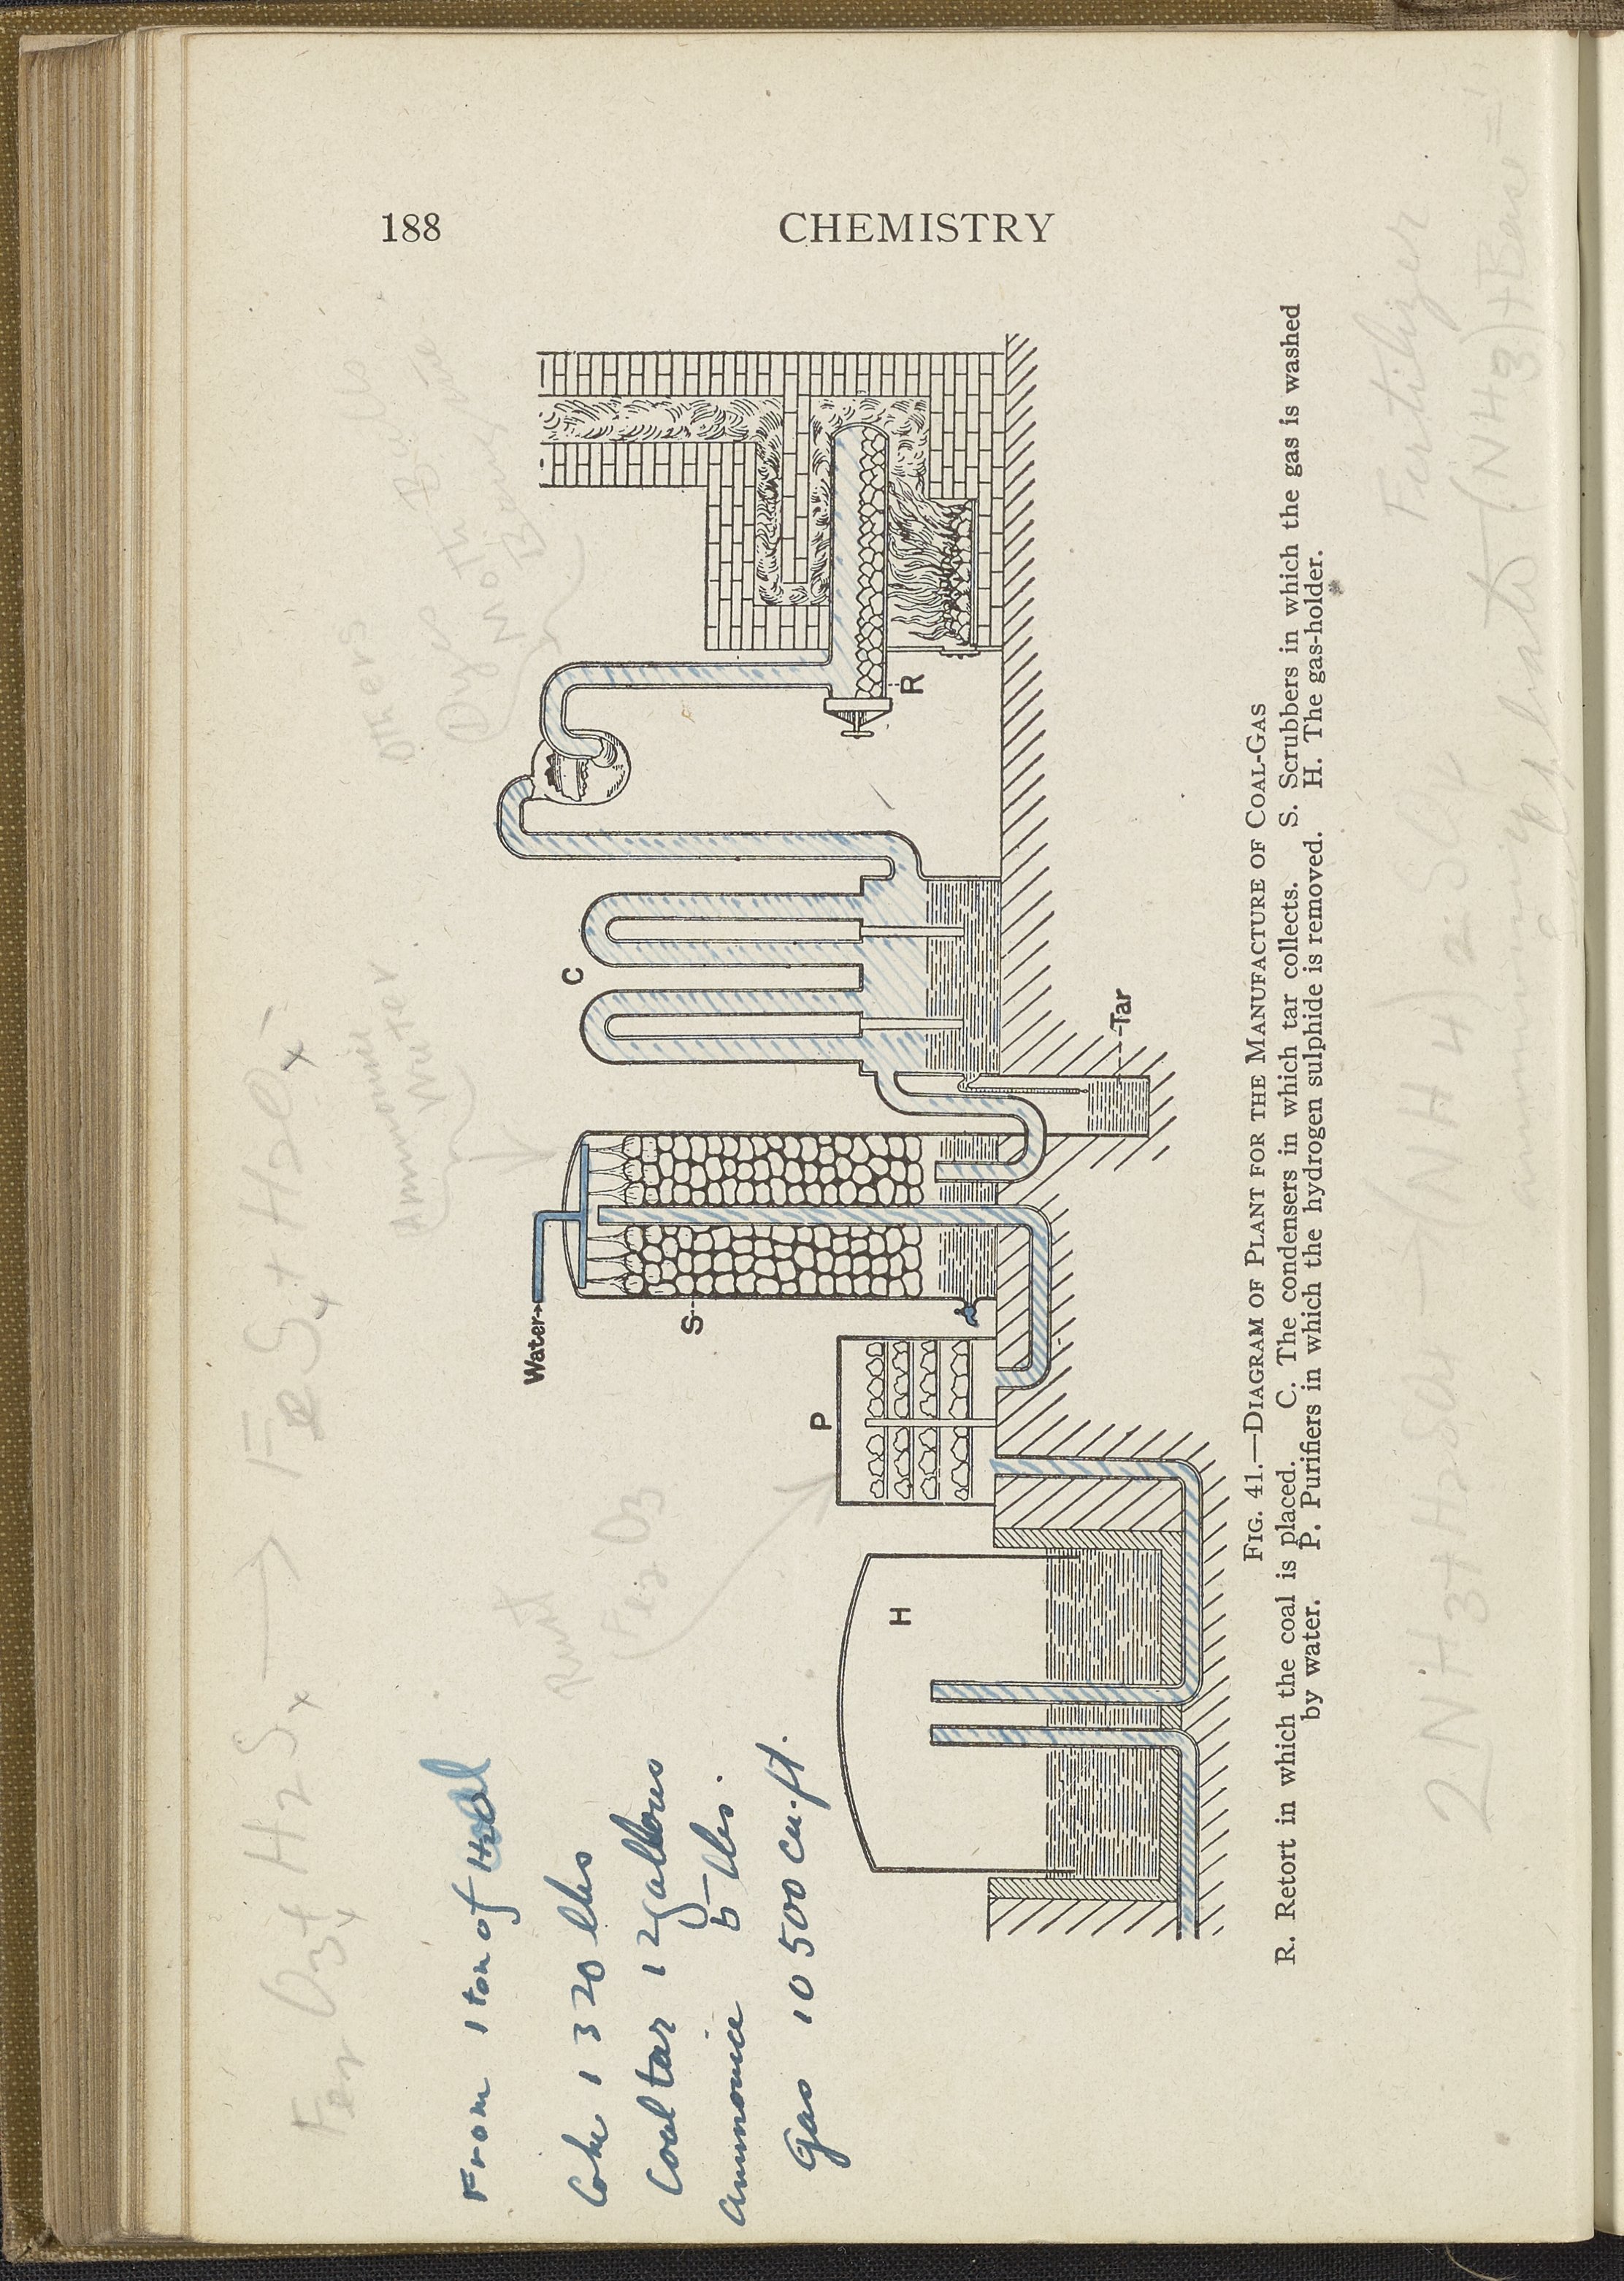 188
CHEMISTRY
Fe2 O3 + H2S → FeS + H2O
others
Dyes
Moth Balls
Ammonia
Water
Rust
Fe2 O3
From 1 ton of coal
Coke 1320 lbs
Coal tar 12 gallons
Ammonia 5 lbs.
Gas 10 500 cu. ft.
Water
C
S
P
H
R
Tar
FIG. 41.—DIAGRAM OF PLANT FOR THE MANUFACTURE OF COAL-GAS
R. Retort in which the coal is placed. C. The condensers in which tar collects. S. Scrubbers in which the gas is washed
by water. P. Purifiers in which the hydrogen sulphide is removed. H. The gas-holder.
Fertilizer
2NH3 + H2SO4 → (NH4)2 SO4
(NH3) + Base =